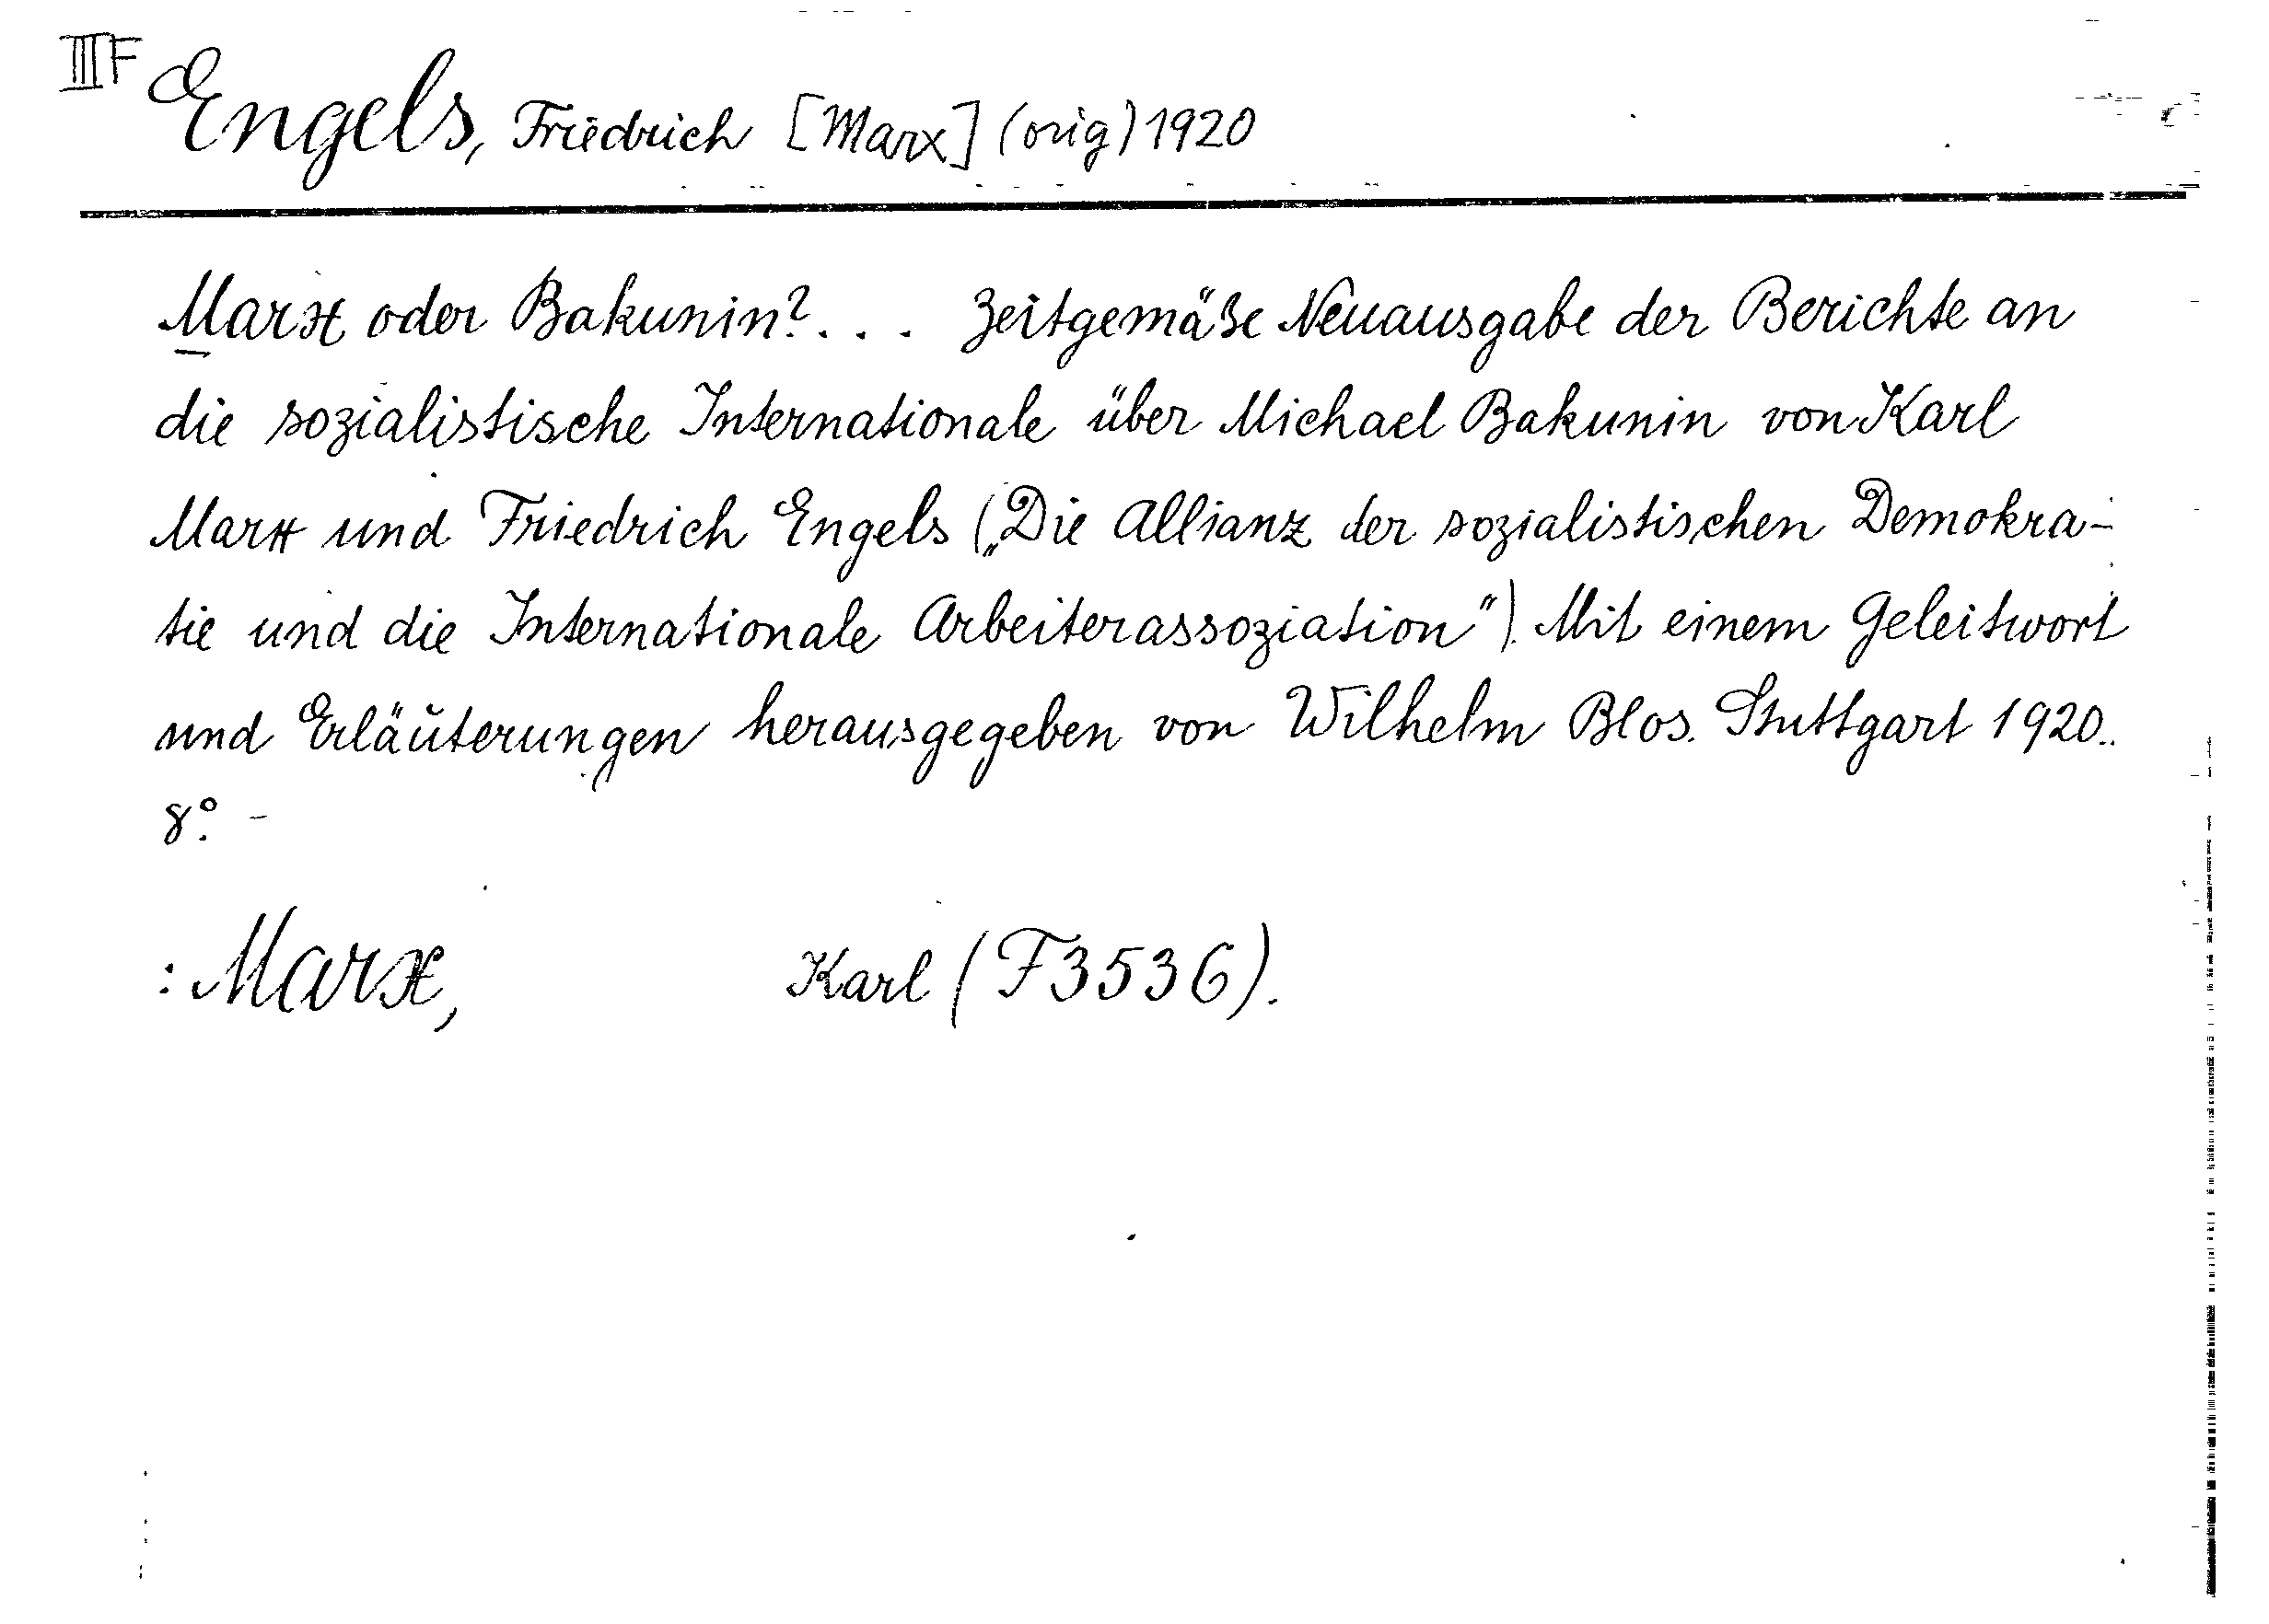 III F Engels, Friedrich [Marx] (orig) 1920
Marx oder Bakunin? . . . Zeitgemäße Neuausgabe der Berichte an
die sozialistische Internationale über Michael Bakunin von Karl
Marx und Friedrich Engels („Die Allianz der sozialistischen Demokra-
tie und die Internationale Arbeiterassoziation"). Mit einem Geleitwort
und Erläuterungen herausgegeben von Wilhelm Blos. Stuttgart 1920.
8°. -
: Marx, Karl (F3536).